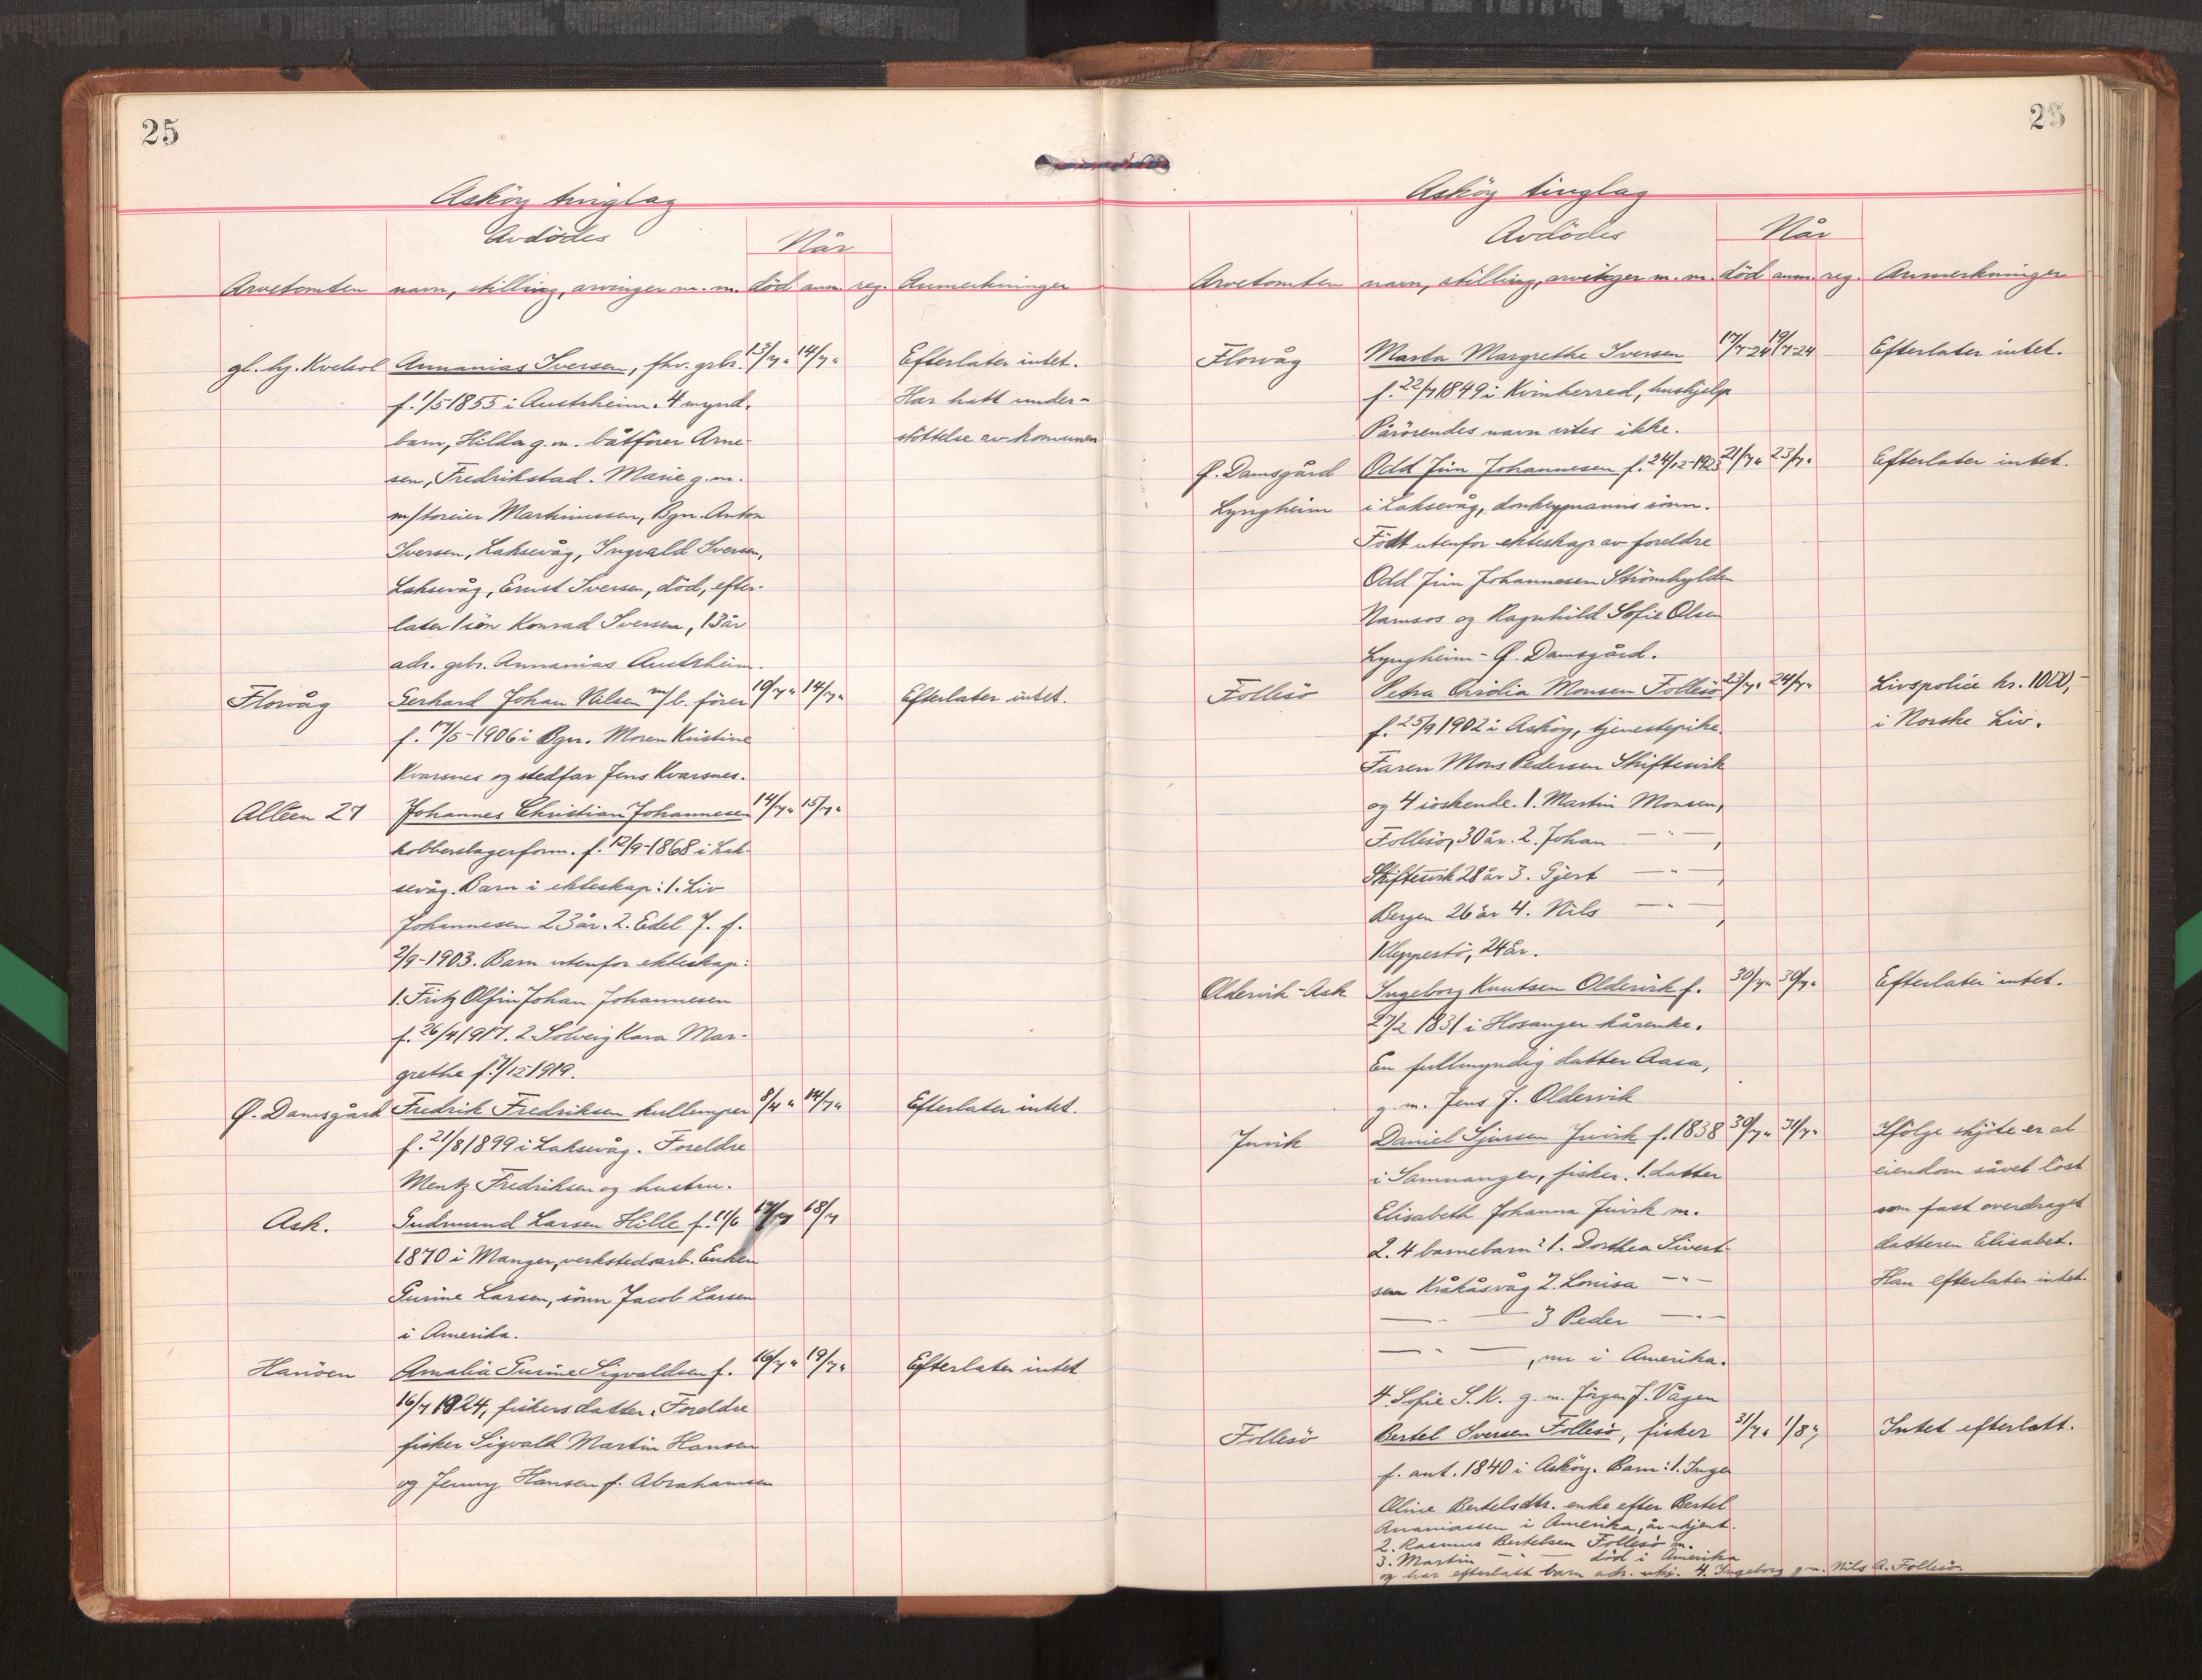 25
Asköy tinglag
Avdödes
Når
Arvetomten navn, stilling, arvinger m. m. död anm. reg. Anmerkninger
gl. hj. Annanias Iversen, fhv. grbr. 13/7 " 14/7 " Efterlater intet.
f. 1/5 1855 i Austrheim. 4 mynd. Har hatt under-
barn, Hilda g. m. båtförer Arne- støttelse av komunen
sen, Fredrikstad. Marie g. m.
m/toreier Martinussen, Bgn. Anton
Iversen, Laksevåg, Ingvald Iversen,
Laksevåg, Ernst Iversen, död, efter-
later 1 sön Konrad Iversen, 13 år
adr. grbr. Annanias Austrheim.
Florvåg Gerhard Johan Nilsen m/b. förer 10/7 " 14/7 " Efterlater intet.
f. 17/5-1906 i Bgn. Moren Kristine
Kvarsnes og stedfar Jens Kvarsnes.
Alléen 27 Johannes Christian Johannesen 14/7 " 15/7 "
kobberslagerform. f. 12/9-1868 i Lak-
sevåg. Barn i ekteskap: 1. Liv
Johannesen 23 år. 2. Edel J. f.
2/9-1903. Barn utenfor ekteskap:
1. Fritz Olfin Johan Johannesen
f. 26/4 1917. 2. Solveig Kara Mar-
grethe f. 7/12 1919.
Ø. Damsgård Fredrik Fredriksen kullemper 8/4 " 14/7 " Efterlater intet.
f. 21/8 1899 i Laksevåg. Foreldre
Mentz Fredriksen og hustru.
Ask. Gudmund Larsen Hille f. 11/6 18/7
1870 i Manger, verkstedsarb. Enken
Gurine Larsen, sönn Jacob Larsen
i Amerika.
Hanöen Amalia Gurine Sigvaldsen f. 16/7 " 19/7 " Efterlater intet
16/7 1924, fiskers datter. Foreldre
fisker Sigvald Martin Hansen
og Jenny Hansen f. Abrahamsen
25
Asköy tinglag
Avdödes
Når
Arvetomten navn, stilling, arvinger m. m. död anm. reg. Anmerkninger
Florvåg Marta Margrethe Iversen 17/7-24 19/7-24 Efterlater intet.
f. 22/7 1849 i Kvinherred, hushjelp
Pårörendes navn vites ikke.
Ø. Damsgård Odd Jim Johannesen f. 24/12-1923 21/7 " 23/7 " Efterlater intet.
Lyngheim i Laksevåg, donkeymanns sönn.
Födt utenfor ekteskap av foreldre
Odd Jim Johannesen Strömhylden
Namsos og Ragnhild Sofie Olsen
Lyngheim - Ø. Damsgård.
Follesö Petra Monsen Follesö 23/7 " 24/7 " Livspolice kr. 1000,-
f. 25/9 1902 i Asköy, tjenestepike. i Norske Liv.
Faren Mons Pedersen Skiftesvik
og 4 söskende. 1. Martin Monsen,
Follesö, 30 år. 2. Johan — " —,
Skiftesvik 28 år 3. Gjert — " —,
Bergen 26 år 4. Nils — " —,
Kleppestö, 24 år.
Oldervik - Ask Ingeborg Knutsen Oldervik f. 30/7 " 30/7 " Efterlater intet.
27/2 1831 i Hosanger kårenke.
En fullmyndig datter Aasa,
g. m. Jens J. Oldervik
Juvik Daniel Sjursen Juvik f. 1838 30/7 " 31/7 " Ifölge skjöte er al
i Samnanger, fisker. 1. datter eiendom såvel löst
Elisabeth Johanna Juvik m. som fast overdraget
2. 4 barnebarn: 1. Dorthea Sivert- datteren Elisabet.
sen Kråkåsvåg 2. Lovisa — " — Han efterlater intet.
— " — 3 Peder — " —
— " —, nu i Amerika.
4 Sofie S. K. g. m. Jörgen J. Vågen
Follesö Bertel Iversen Follesö, fisker 31/7 " 1/8 " Intet efterlatt.
f. ant. 1840 i Asköy. Barn: 1. Inger
Oline Bertelsdtr. enke efter Bertel
Ananiassen i Amerika, år ukjent.
2. Rasmus Bertelsen Follesö m.
3. Martin — " — död i Amerika
og har efterlatt barn adr. ukj. 4. Ingeborg g. m. Nils A. Follesö.